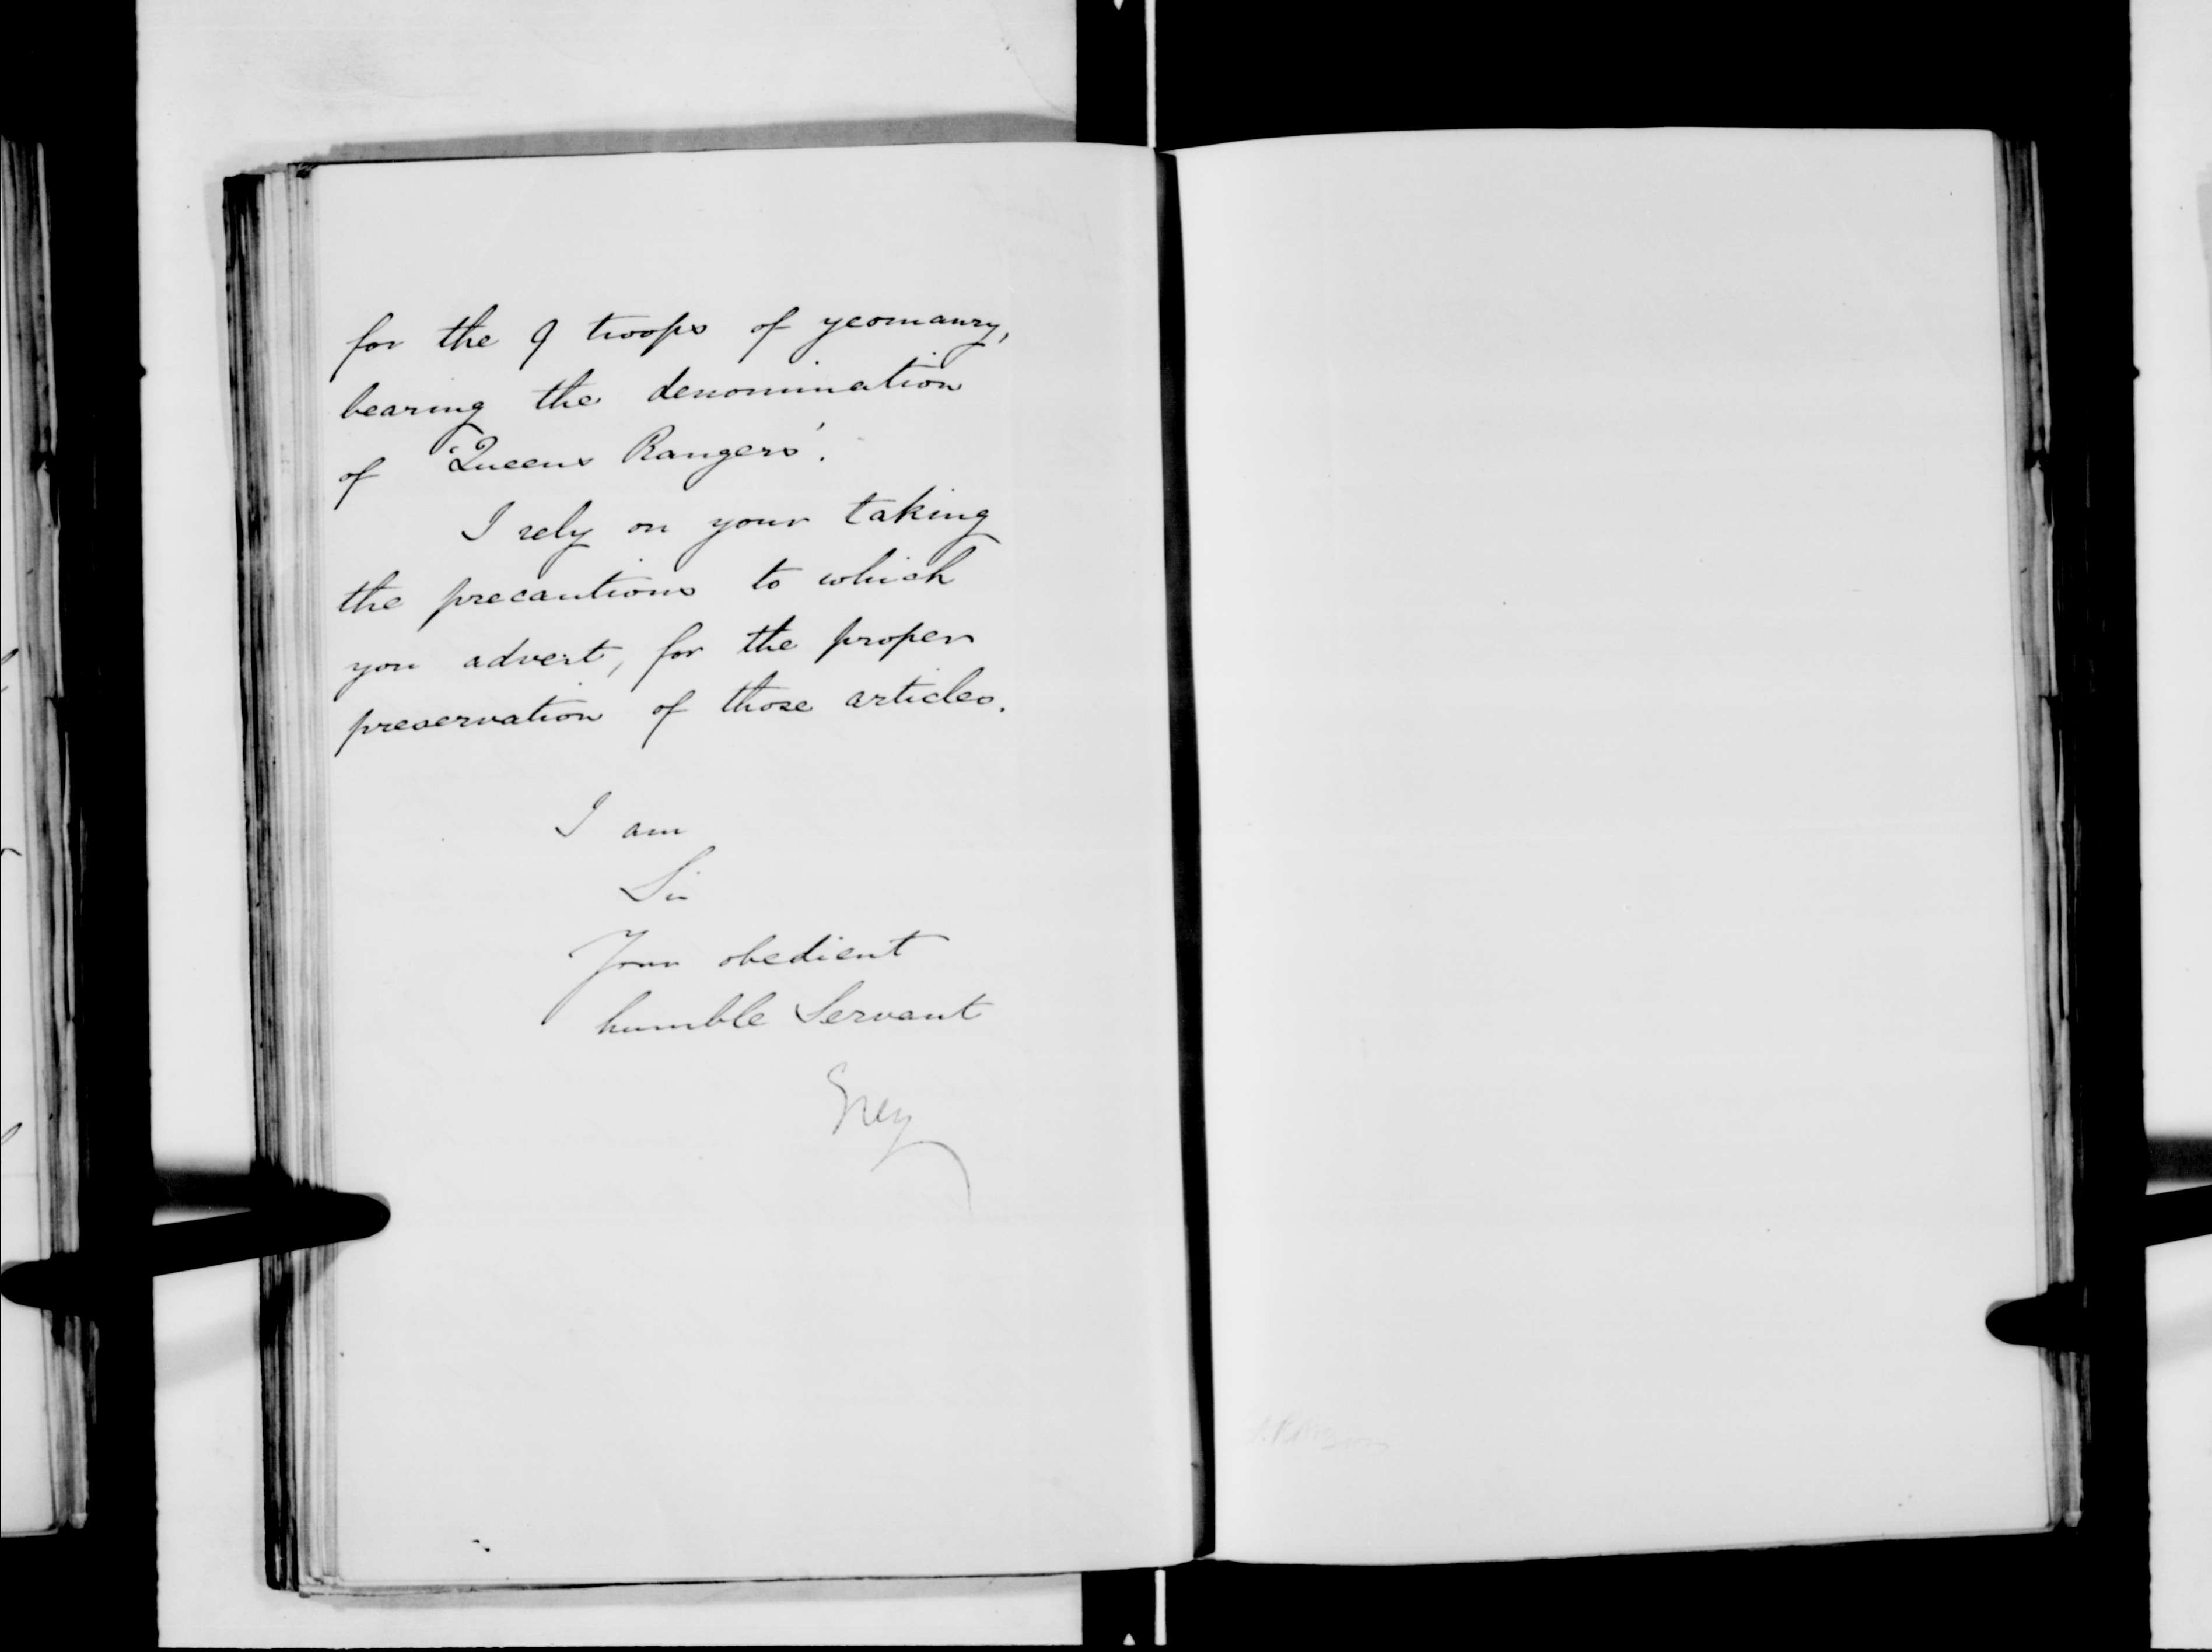 for the 9 troops of yeomanry,
bearing the denomination
of 'Queens Rangers'.
I rely on your taking
the precautions to which
you advert, for the proper
preservation of those articles.
I am
Sir
Your obedient
humble Servant
Grey